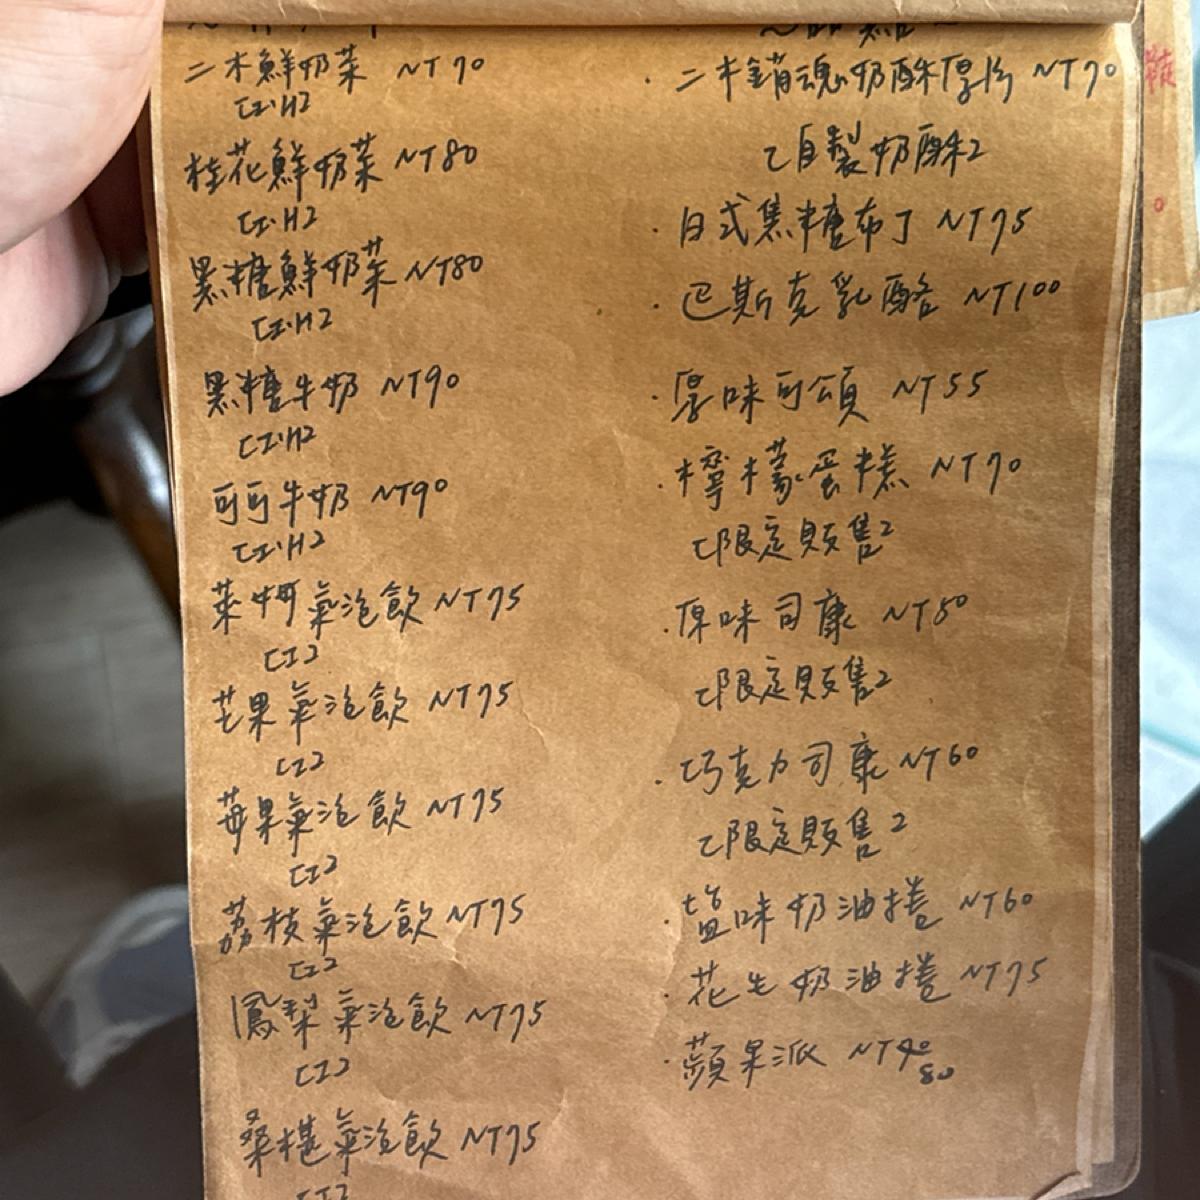 二木鮮奶茶 NT70
[I.H]
桂花鮮奶茶 NT80
[I.H]
黑糖鮮奶茶 NT80
[I.H]
黑糖牛奶 NT90
[I.H]
可可牛奶 NT90
[I.H]
萊姆氣泡飲 NT75
[I]
芒果氣泡飲 NT75
[I]
莓果氣泡飲 NT75
[I]
荔枝氣泡飲 NT75
[I]
鳳梨氣泡飲 NT75
[I]
桑椹氣泡飲 NT75
[I]
· 二木銷魂奶酥厚片 NT70
[自製奶酥]
· 日式焦糖布丁 NT75
· 巴斯克乳酪 NT100
· 原味可頌 NT55
· 檸檬蛋糕 NT70
[限定販售]
· 原味司康 NT50
[限定販售]
· 巧克力司康 NT60
[限定販售]
· 塩味奶油捲 NT60
· 花生奶油捲 NT75
· 蘋果派 NT
80